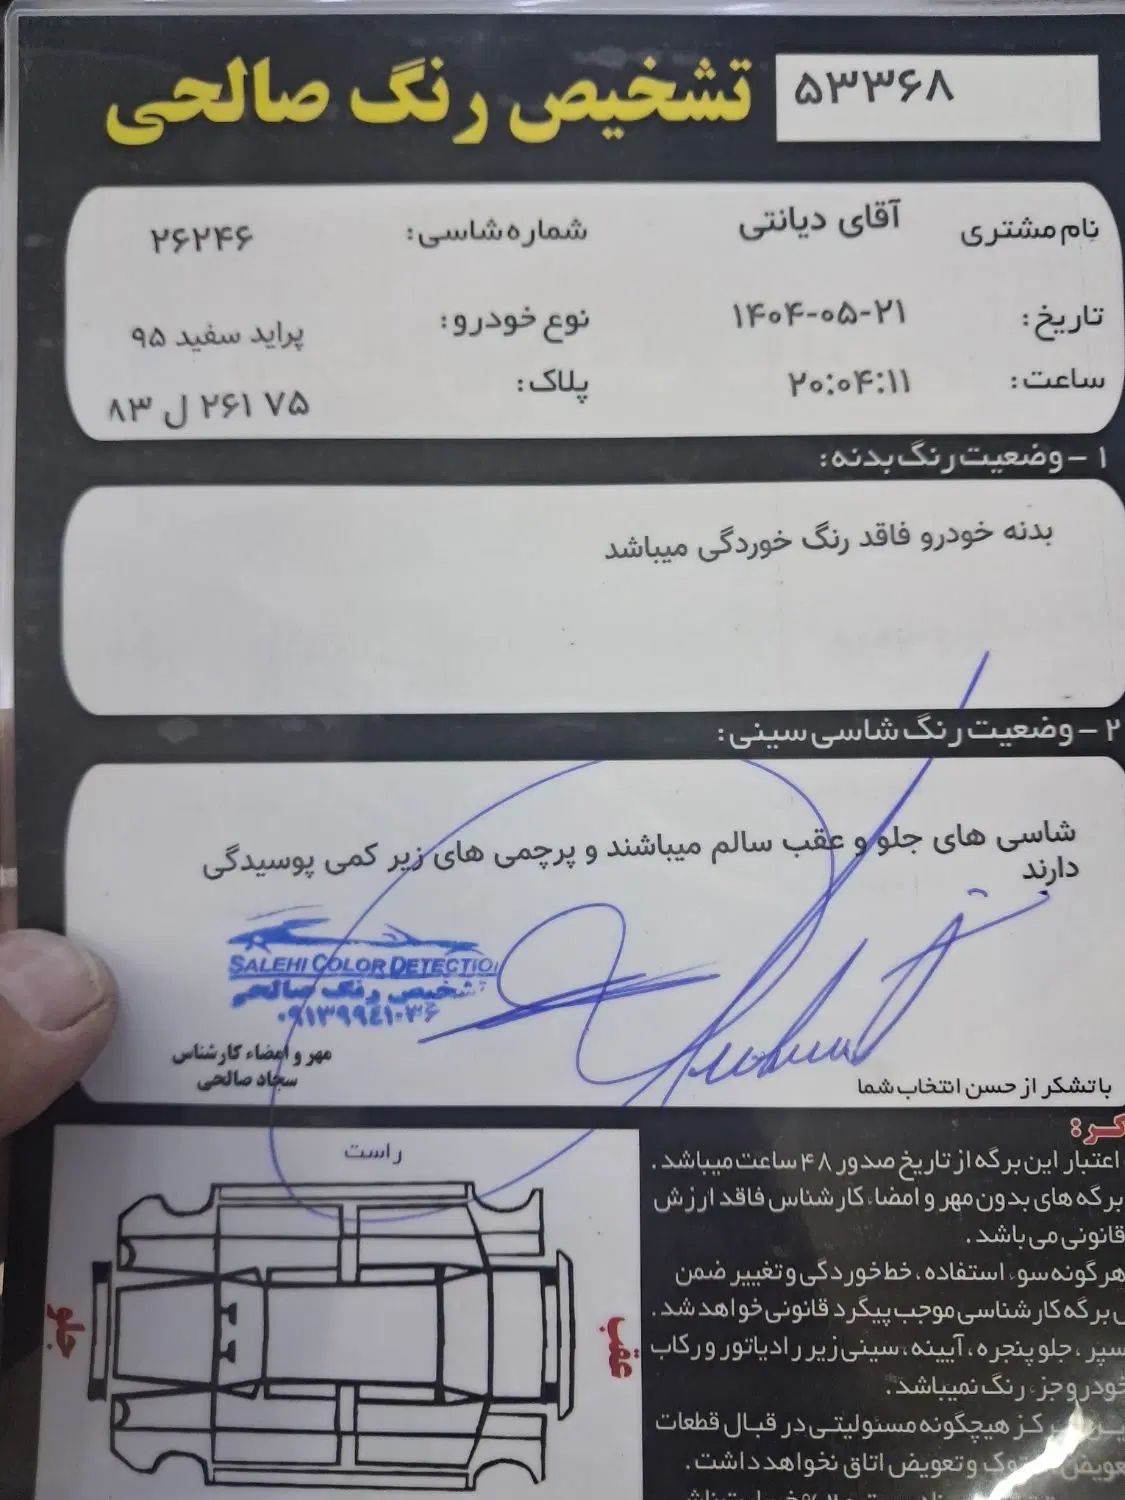 ۵۳۳۶۸
تشخیص رنگ صالحی
نام مشتری آقای دیانتی شماره شاسی: ۲۶۲۴۶
تاریخ: ۱۴۰۴-۰۵-۲۱ نوع خودرو: پراید سفید ۹۵
ساعت: ۲۰:۰۴:۱۱ پلاک: ۸۳ ل ۲۶۱ ۷۵
۱ - وضعیت رنگ بدنه:
بدنه خودرو فاقد رنگ خوردگی میباشد
۲ - وضعیت رنگ شاسی سینی:
شاسی های جلو و عقب سالم میباشند و پرچمی های زیر کمی پوسیدگی
دارند
SALEHI COLOR DETECTIO
تشخیص رنگ صالحی
مهر و امضاء کارشناس
سجاد صالحی
با تشکر از حسن انتخاب شما
راست
جلو
عقب
اعتبار این برگه از تاریخ صدور ۴۸ ساعت میباشد.
برگه های بدون مهر و امضاء کارشناس فاقد ارزش
قانونی می باشد.
هرگونه سوء استفاده، خط خوردگی و تغییر ضمن
برگه کارشناسی موجب پیگرد قانونی خواهد شد.
سپر، جلو پنجره، آیینه، سینی زیر رادیاتور و رکاب
خودرو جزء رنگ نمیباشد.
هیچگونه مسئولیتی در قبال قطعات
و تعویض اتاق نخواهد داشت.